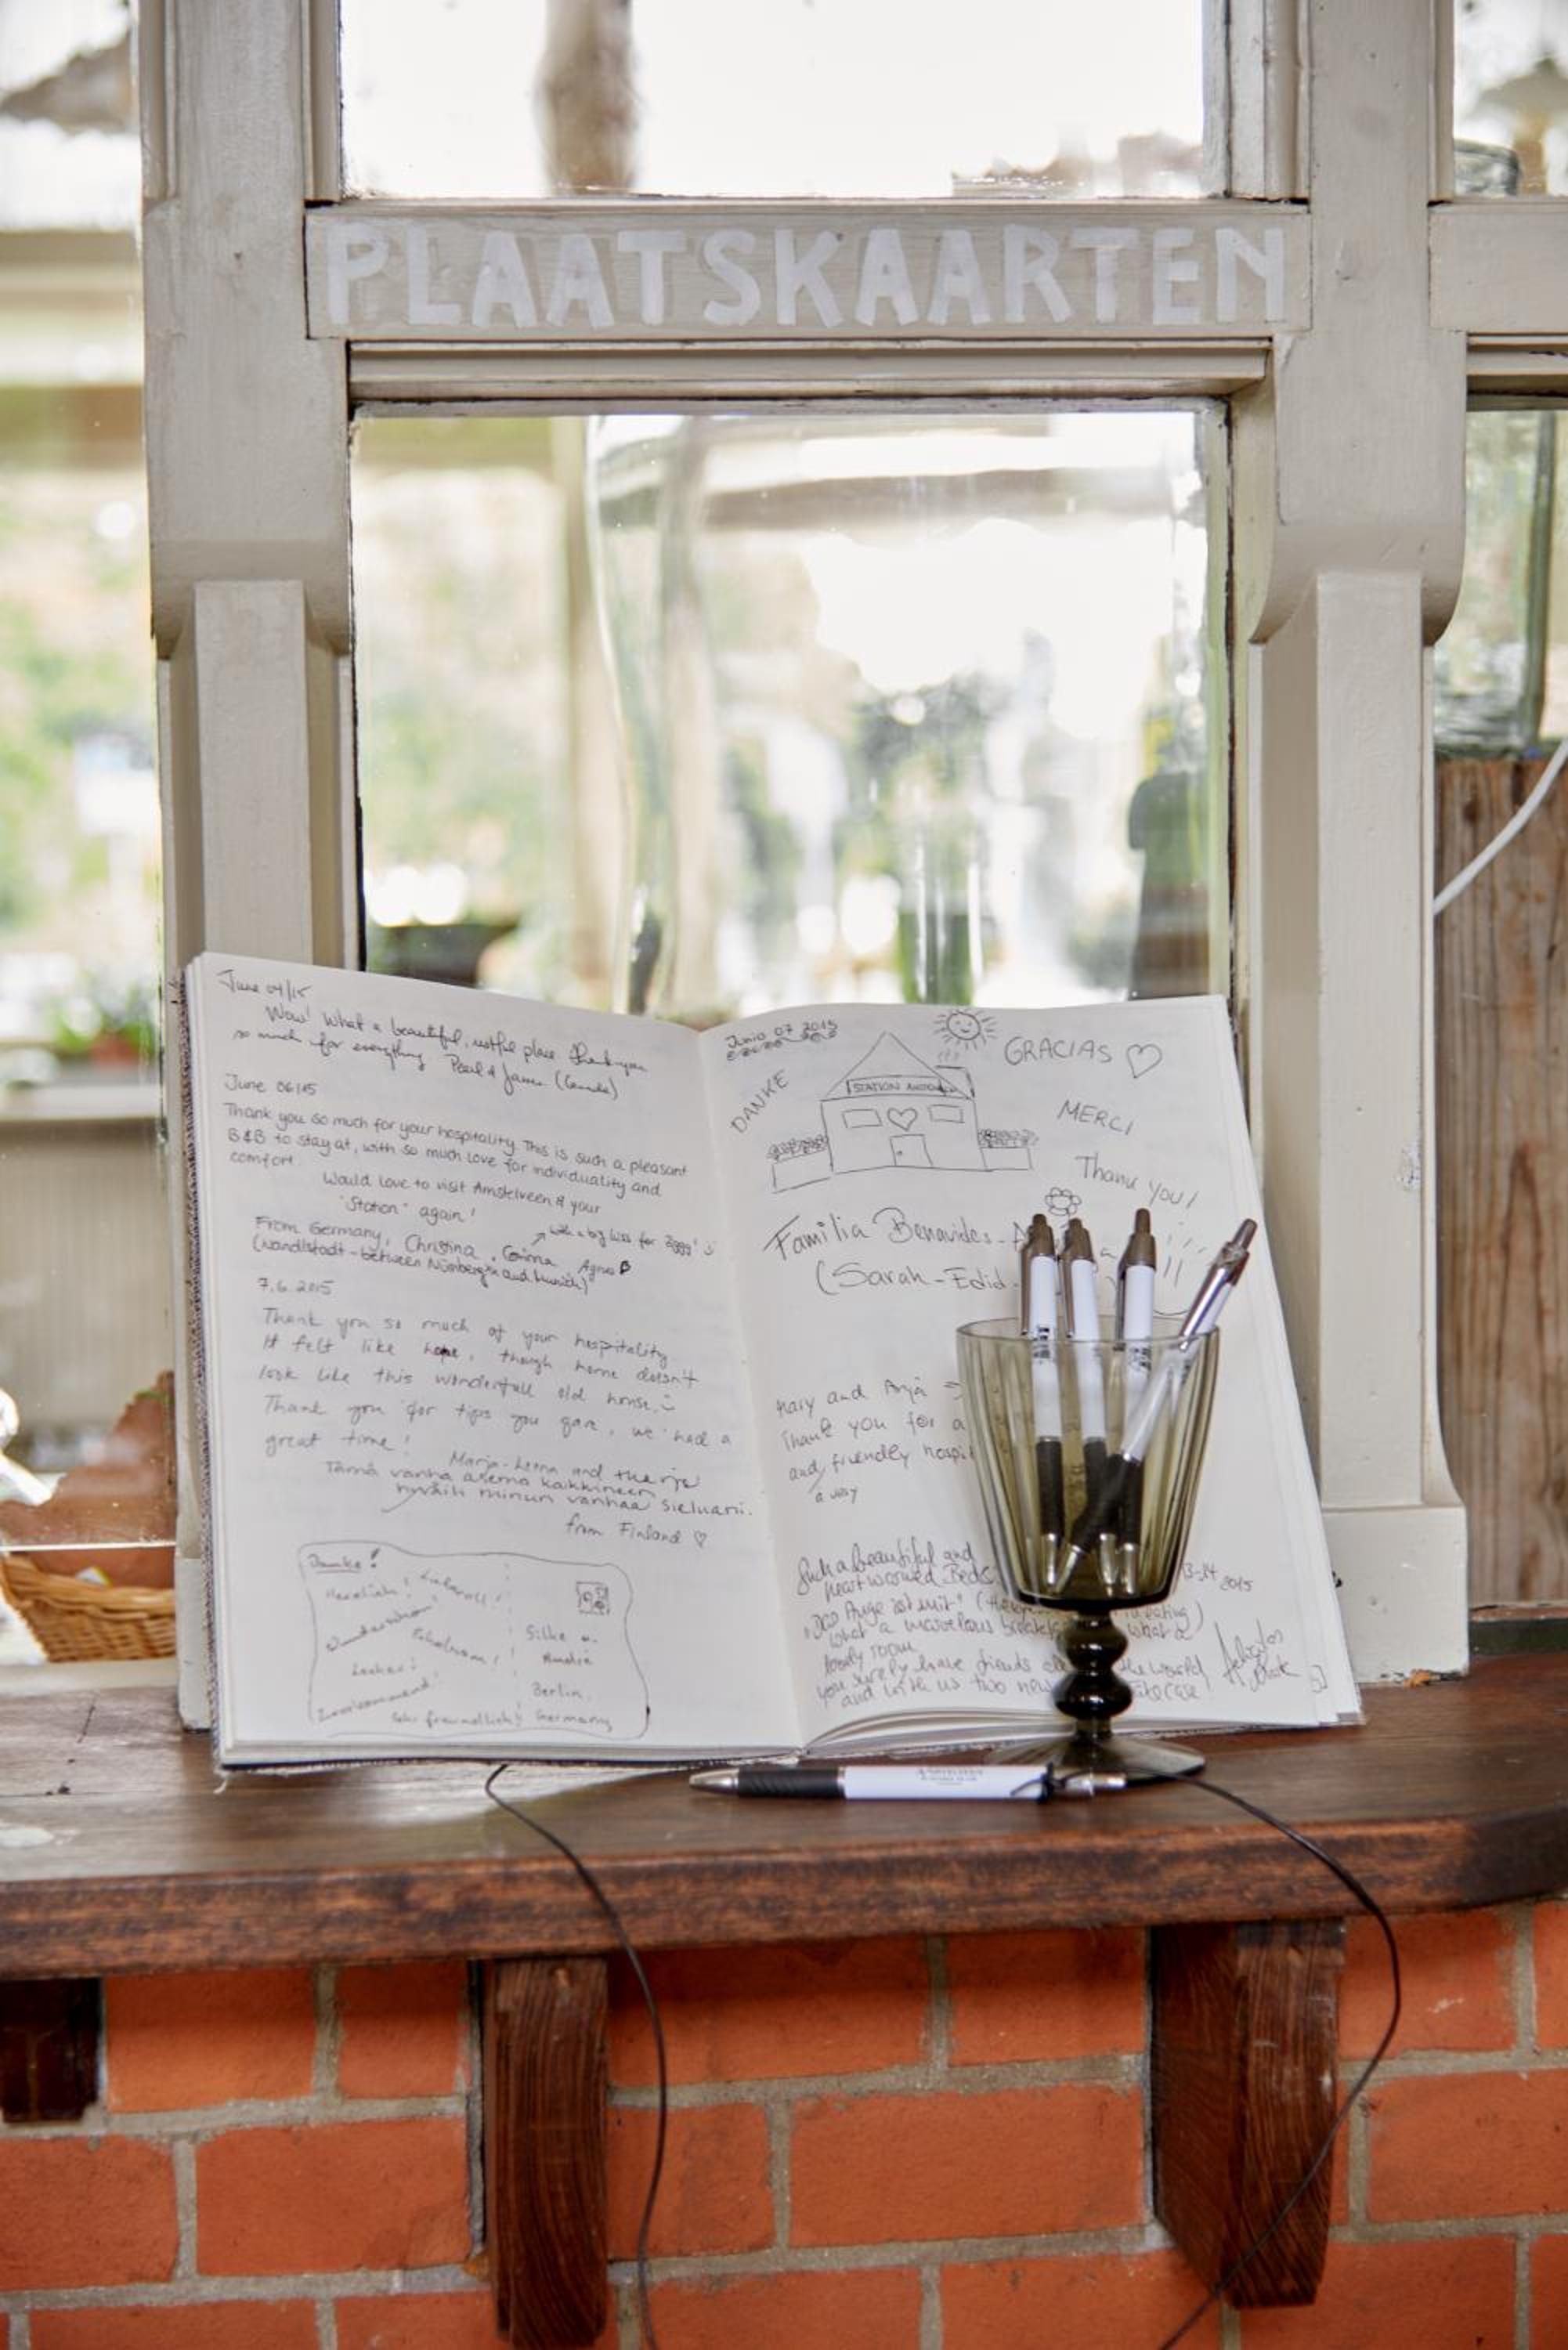 PLAATSKAARTEN
June 04/15
Wow! What a beautiful, restful place. Thank you
so much for everything Paul & James (Canada)
June 06/15
Thank you so much for your hospitality. This is such a pleasant
B&B to stay at, with so much love for individuality and
comfort.
Would love to visit Amstelveen & your
"Station" again!
with a big kiss for Ziggy!
From Germany, Christina, Corinna, Agnes
(Wandlstadt - between Nürnberg and Munich)
7.6.2015
Thank you so much of your hospitality.
It felt like home, though home doesn't
look like this wonderfull old house.
Thank you for tips you gave, we had a
great time!
Marja-Leena and
Tämä vanha asema kaikkineen
hyväili minun vanhaa sieluani.
from Finland ♡
Danke!
Herzlich! Liebevoll!
Wunderschön!
Erholsam!
Lecker!
Zuvorkommend!
Sehr freundlich!!
Silke u.
Berlin,
Germany
Junio 07 2015
DANKE
STATION
GRACIAS ♡
MERCI
Thank you!
Familia Benavides-A
(Sarah-Edid-
Mary and Anja
Thank you for a
and friendly hospi
a way
Such a beautiful and
heart warmed Bed&
13-14 2015
"Das Auge isst mit" (
eating)
what a marvelous break
what a
lovely room
you surely have friends
the world
and with us two new